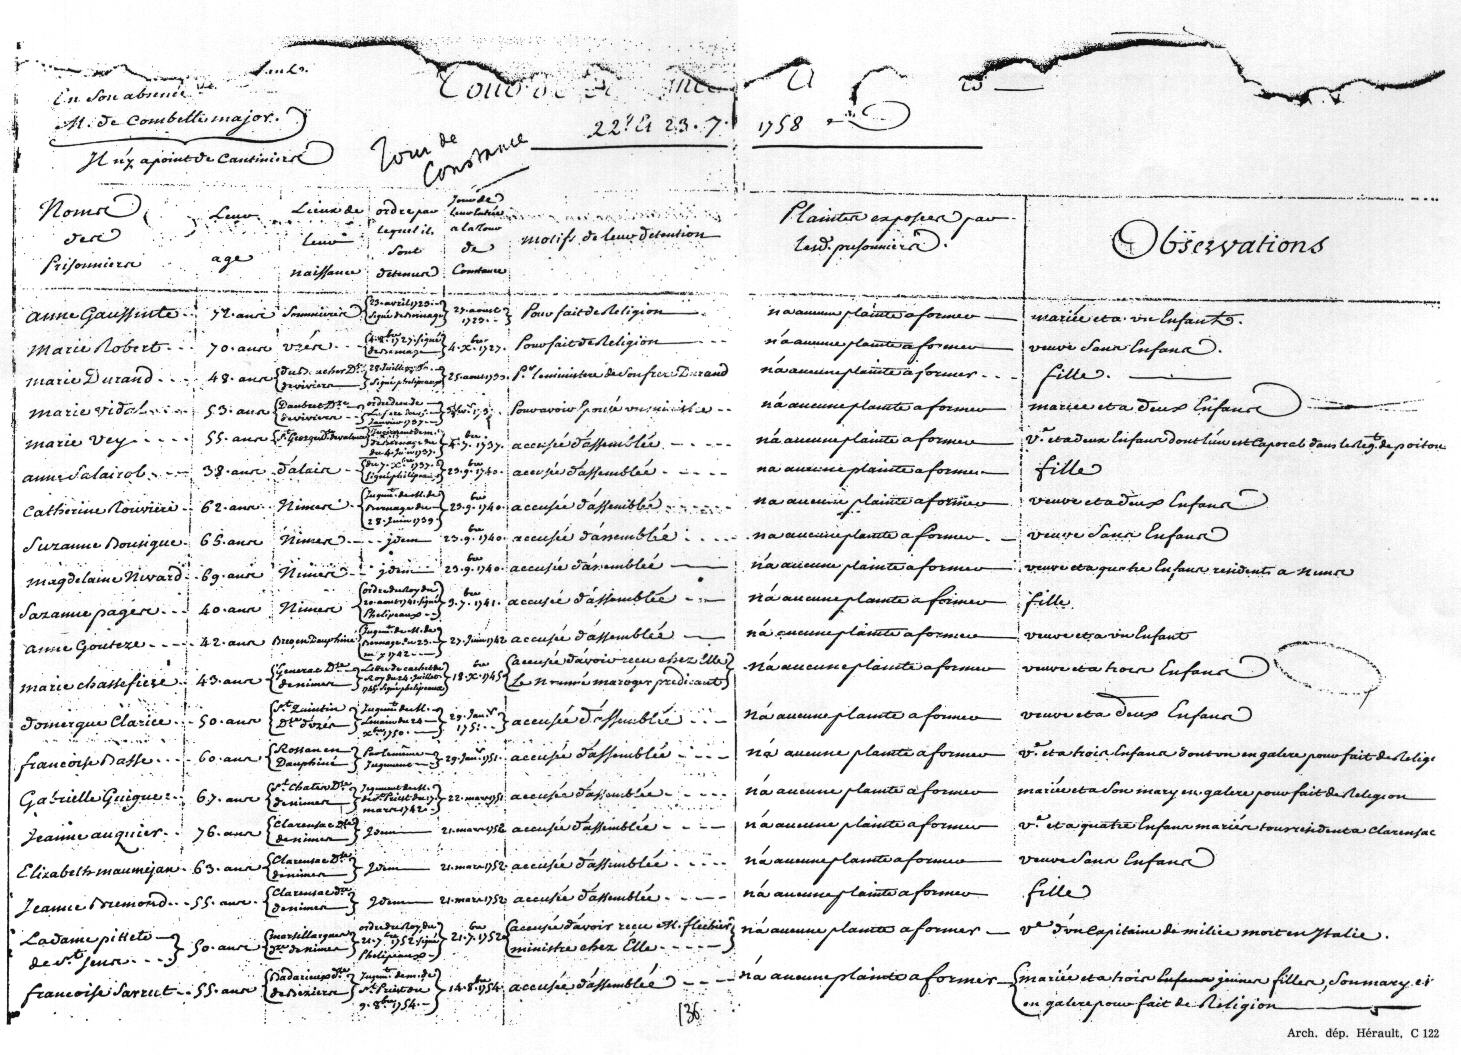 En son absence
M. de Combelle major.
Il n'y a point de Cantiniers
Tour de
Constance
22e Et 23. 7.
1758
Noms des Prisonniers
Leur age
Lieux de leur naissance
ordre par lequel il sont detenus
Jour de leur entrée a la tour de Constance
motifs de leur detention
Plaintes exposées par lesd. prisonniers.
Observations
anne Gaussinte 72. ans Sommières 27. aoust 1723. Pour fait de Religion n'a aucune plainte a former mariée et a. un Enfant.
Marie Robert 70. ans uzés 4. Xbre 1727. Pour fait de Religion n'a aucune plainte a former veuve sans Enfans.
marie Durand 48. ans Pr. le ministere de son frere Durand n'a aucune plainte a former fille.
marie vidal 53. ans Pour avoir Epousé un ministre n'a aucune plainte a former mariée et a deux Enfans
marie vey 55. ans accusée d'assemblée n'a aucune plainte a former ve. et a deux Enfans dont l'un est Caporal dans le Regt. de poitou
anne Salairol 38. ans d'alais du 7. Xbre 1737. signé philipeaux 23. 9bre 1740. accusée d'assemblée n'a aucune plainte a former fille
Catherine Rouviere 62. ans Nimes Jugmt. de M. de Bernage du 28. Juin 1739 23. 9bre 1740. accusée d'assemblée n'a aucune plainte a former veuve et a deux Enfans
Suzanne Bousigue 65. ans Nimes idem 23. 9bre 1740. accusée d'assemblée n'a aucune plainte a former veuve sans Enfans
magdelaine Nivard 69. ans Nimes idem 23. 9bre 1740. accusée d'assemblée n'a aucune plainte a former veuve et a quatre Enfans residents a Nimes
Suzanne pagès 40. ans Nimes ordre du Roy du 20. aout 1741. signé Phelipeaux 3. 7bre 1741. accusée d'assemblée n'a aucune plainte a former fille
anne Gouteze 42. ans Bren en Dauphiné 27. Juin 1742 accusée d'assemblée n'a aucune plainte a former veuve et a un Enfant
marie chassefiere 43. ans Generac Dse. de nimes Letre de cachet du Roy du 24. Juillet 1745 signé philipeaux 18. Xbre 1745 accusée d'avoir recu chez Elle Le Nommé maroger predicant n'a aucune plainte a former veuve et a trois Enfans
domergue Clarice 50. ans St. Quintin Dse. d'uzés 29. Janr. 175 accusée d'assemblée n'a aucune plainte a former veuve et a deux Enfans
francoise Basse 60. ans Rossan en Dauphiné Par le même Jugment 29. Janr. 1751. accusée d'assemblée n'a aucune plainte a former ve. et a trois Enfans dont un en galere pour fait de Religi
Gabrielle Guigues 67. ans St. Chates Dse. de nimes Jugment de M. de St. Priest du 17 mars 1742 22. mars 1751 accusée d'assemblée n'a aucune plainte a former mariée et a son mary en galere pour fait de Religion
Jeanne auquier 76. ans Clarensac Dse. de nimes Idem 21. mars 1752 accusée d'assemblée n'a aucune plainte a former ve. et a quatre Enfans mariés tous resident a Clarensac
Elizabeth maumejan 63. ans Clarensac Dse. de nimes Idem 21. mars 1752 accusée d'assemblée n'a aucune plainte a former veuve sans Enfans
Jeanne Bremond 55. ans Clarensac dse. de nimes Idem 21. mars 1752 accusée d'assemblée n'a aucune plainte a former fille
La dame pittete de St. Jeus 50. ans marsillargues dse. de nimes ordre du Roy du 21. 7bre 1752 signé Phelipeaux 21. 7bre 1752 accusée d'avoir recu M. flechier ministre chez Elle n'a aucune plainte a former ve. d'un Capitaine de milice mort en Italie.
francoise Sarrut 55. ans Badarieux dse. de Beziers Jugmt. de m. de St. Priest du 9. 8bre 1754. 14. 8bre 1754 accusée d'assemblée n'a aucune plainte a former mariée et a trois Enfans jeunes filles, son mary et
en galere pour fait de Religion
136
Arch. dép. Hérault, C 122